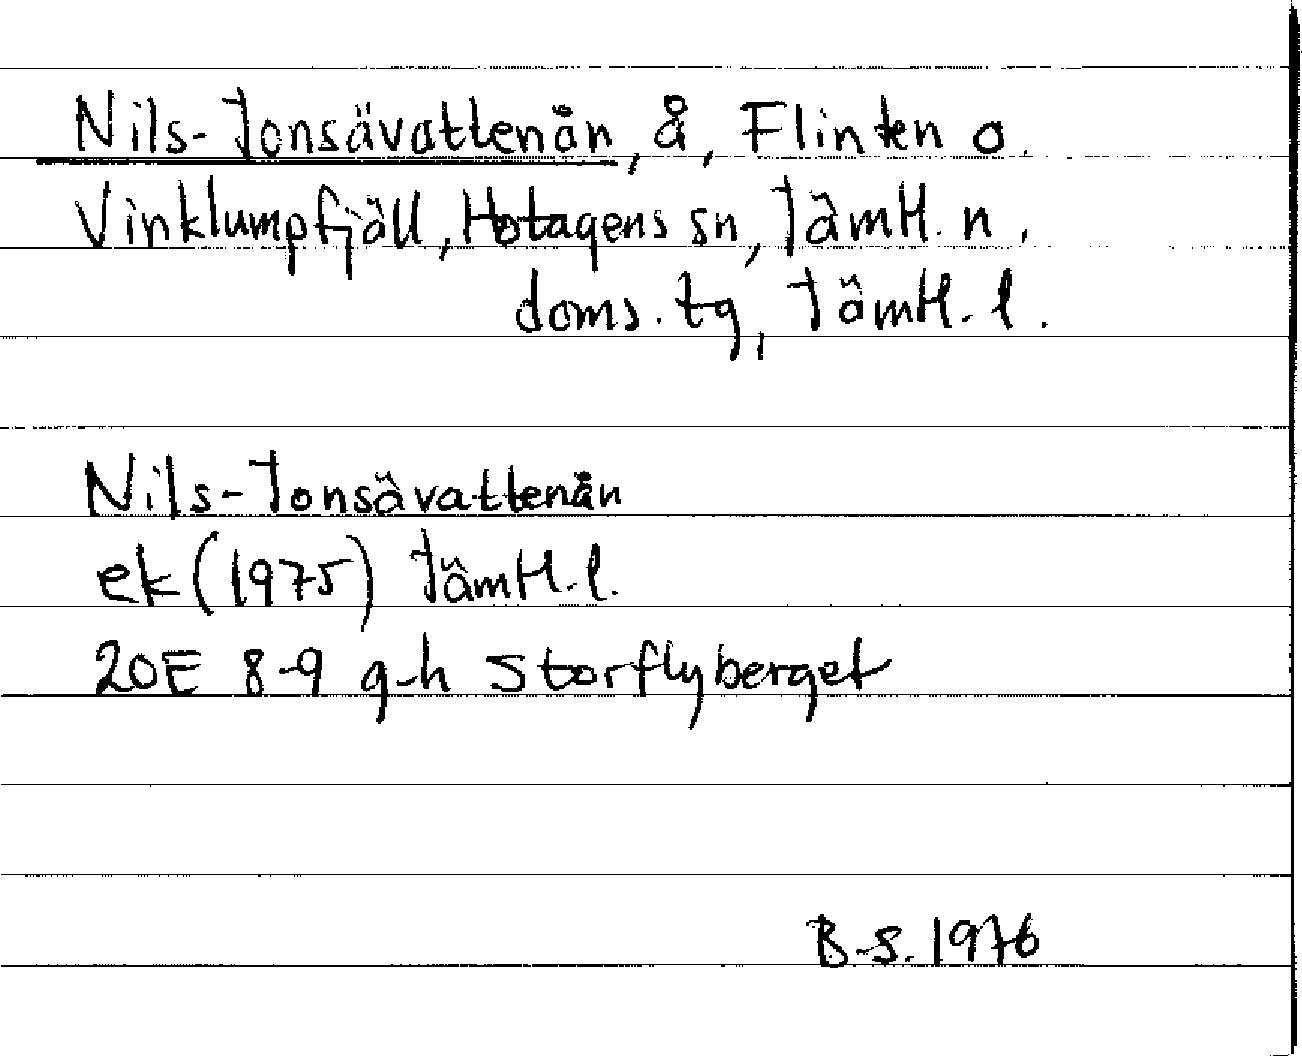 Nils-Jonsävattenån, å, Flinten o.
Vinklumpfjäll, Hotagens sn, Jämtl. n.
doms. tg, Jämtl. l.
Nils-Jonsävattenån
ek (1975) Jämtl. l.
20E 8-9 g-h Storflyberget
B-S. 1976